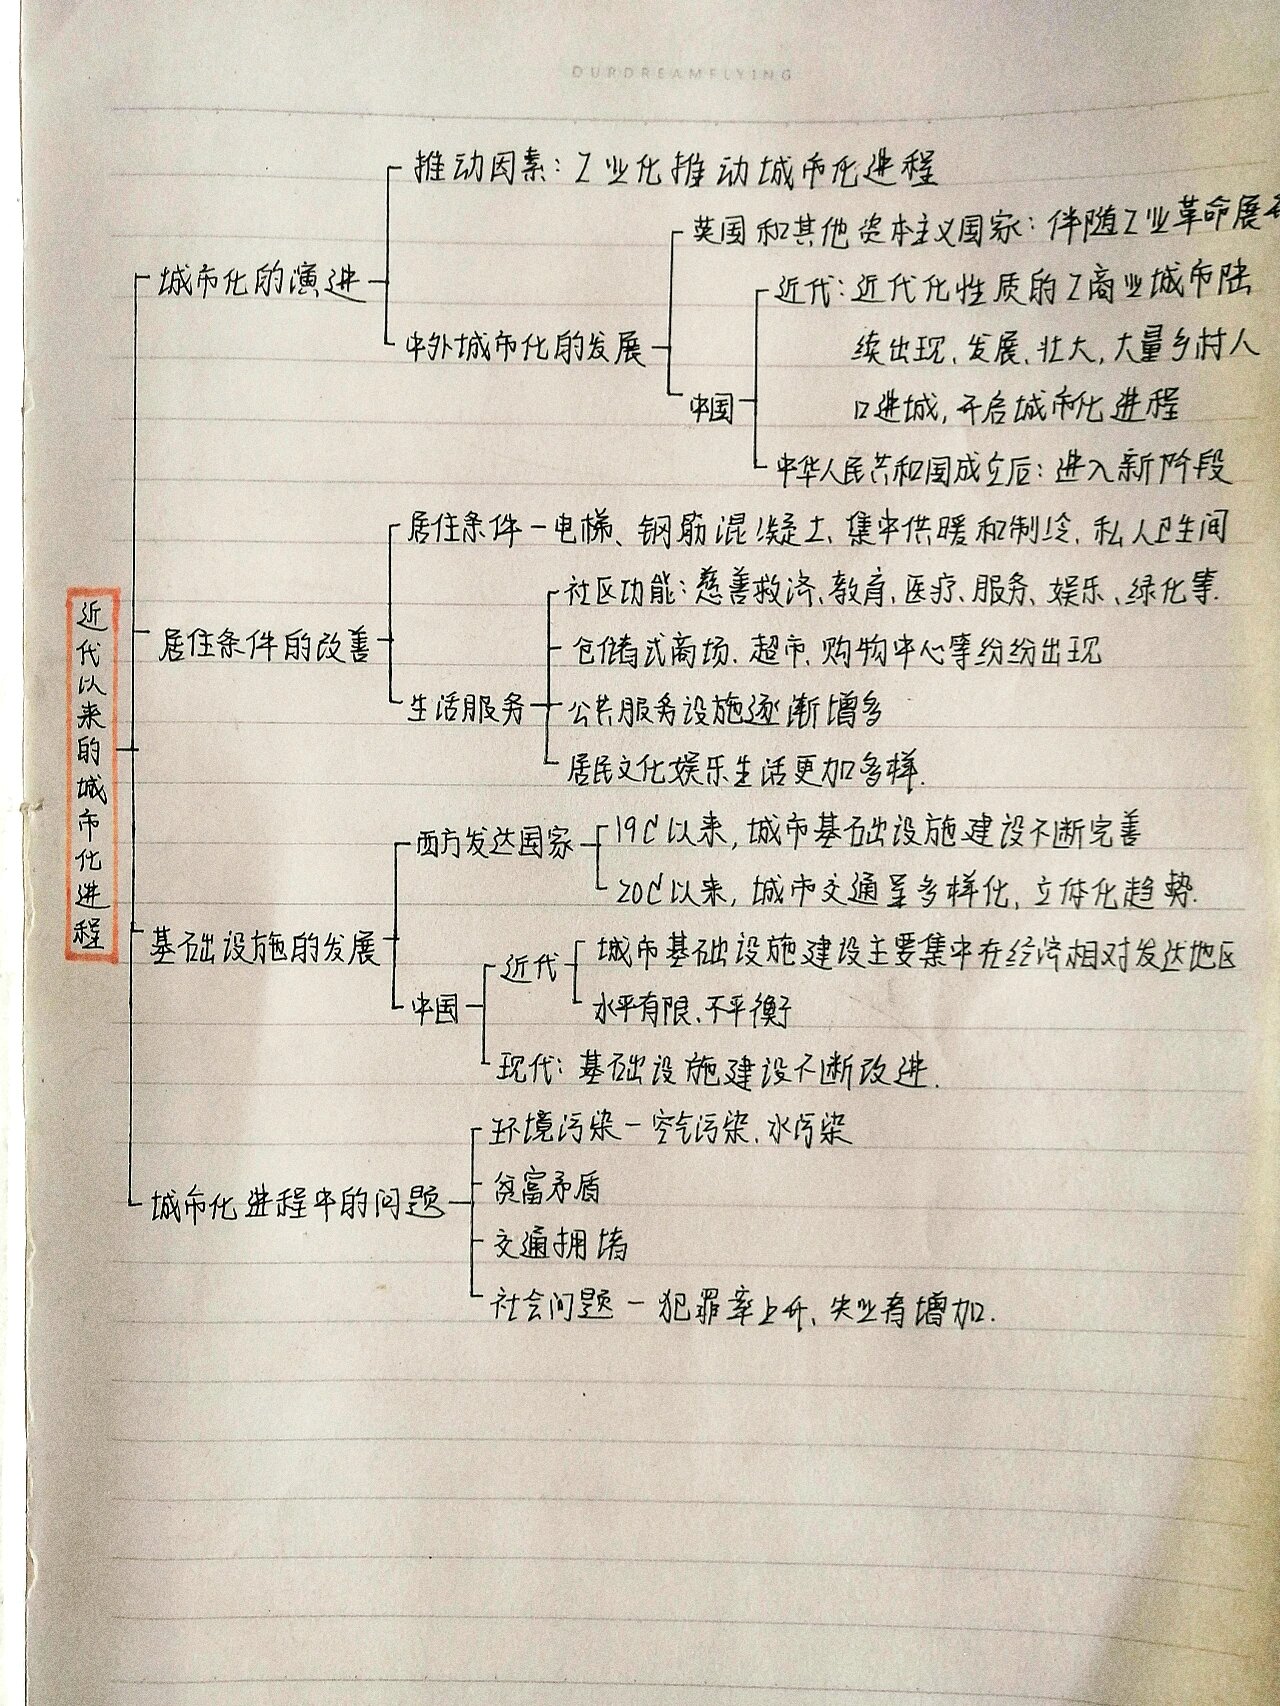 OURDREAMFLYING
推动因素：工业化推动城市化进程
英国和其他资本主义国家：伴随工业革命展
城市化的演进
近代：近代化性质的工商业城市陆
中外城市化的发展
续出现、发展、壮大，大量乡村人
中国
口进城，开启城市化进程
中华人民共和国成立后：进入新阶段
居住条件－电梯、钢筋混凝土、集中供暖和制冷、私人卫生间
社区功能：慈善救济、教育、医疗、服务、娱乐、绿化等.
近代以来的城市化进程
居住条件的改善
仓储式商场、超市、购物中心等纷纷出现
生活服务
公共服务设施逐渐增多
居民文化娱乐生活更加多样.
西方发达国家
19C以来，城市基础设施建设不断完善
20C以来，城市交通呈多样化、立体化趋势.
基础设施的发展
近代
城市基础设施建设主要集中在经济相对发达地区
中国
水平有限、不平衡
现代：基础设施建设不断改进.
环境污染－空气污染、水污染
城市化进程中的问题
贫富矛盾
交通拥堵
社会问题－犯罪率上升、失业者增加.